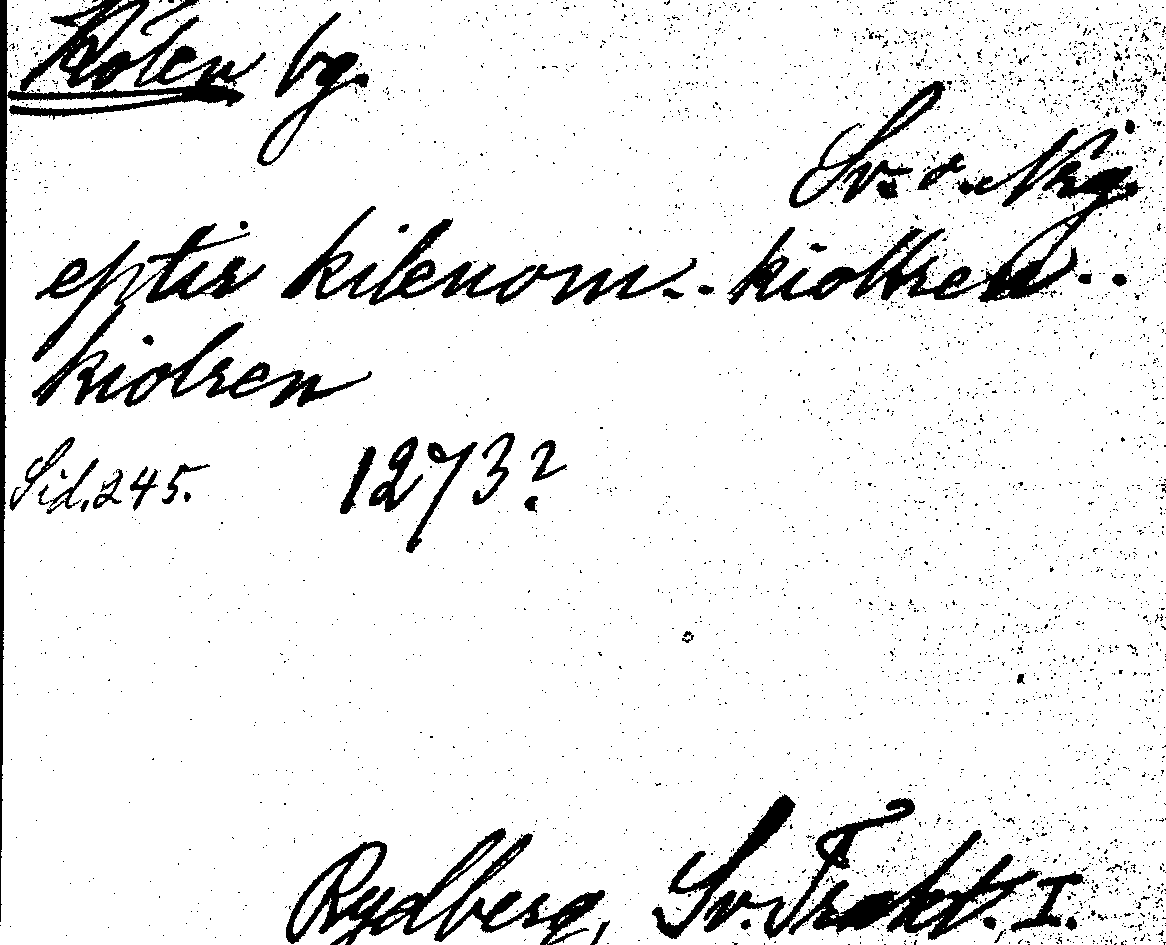 Kölen bg.
Sv. o. Nrg.
eptir kilenom.. kiollren..
kiolren
Sid. 245. 1273?
Rydberg, Sv. Trakt. I.